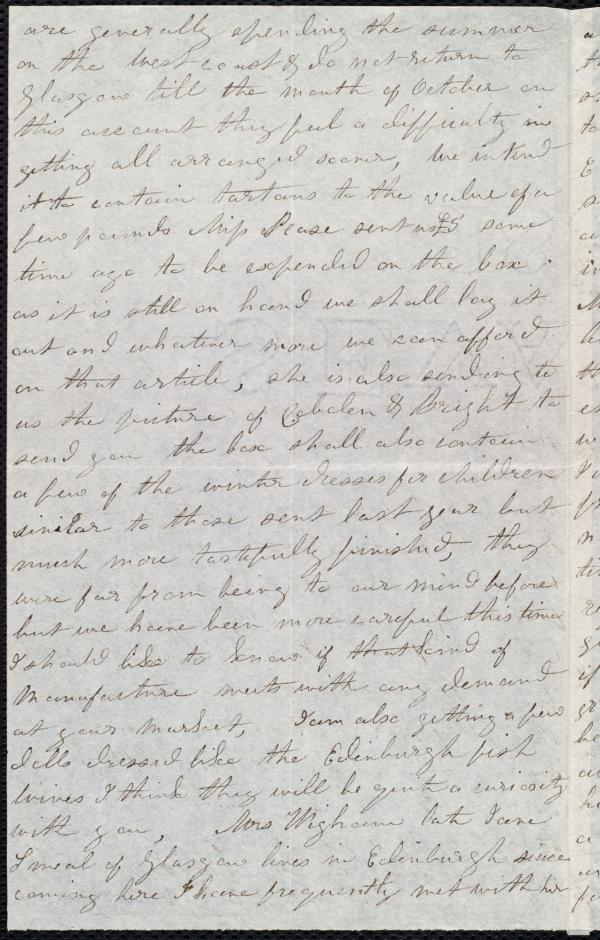 are generally spending the summer
on the West coast & do not return to
Glasgow till the month of October on
this account they feel a difficulty in
getting all arranged sooner, We intend
it to contain tartans to the value of a
few pounds Miss Pease sent us £5 some
time ago to be expended on the box
as it is still on hand we shall lay it
out and whatever more we can afford
on that article, she is also sending to
us the picture of Cobden & Bright to
send you the box shall also contain
a few of the winter dresses for children
similar to those sent last year but
much more tastefully finished, they
were far from being to our mind before
but we have been more careful this time
I should like to know if that kind of
Manufacture meets with any demand
at your Market, I am also getting a few
Dolls dressed like the Edinburgh fish
wives I think they will be quite a curiosity
with you, Mrs Wigham late Jane
Smeal of Glasgow lives in Edinburgh since
coming here I have frequently met with her